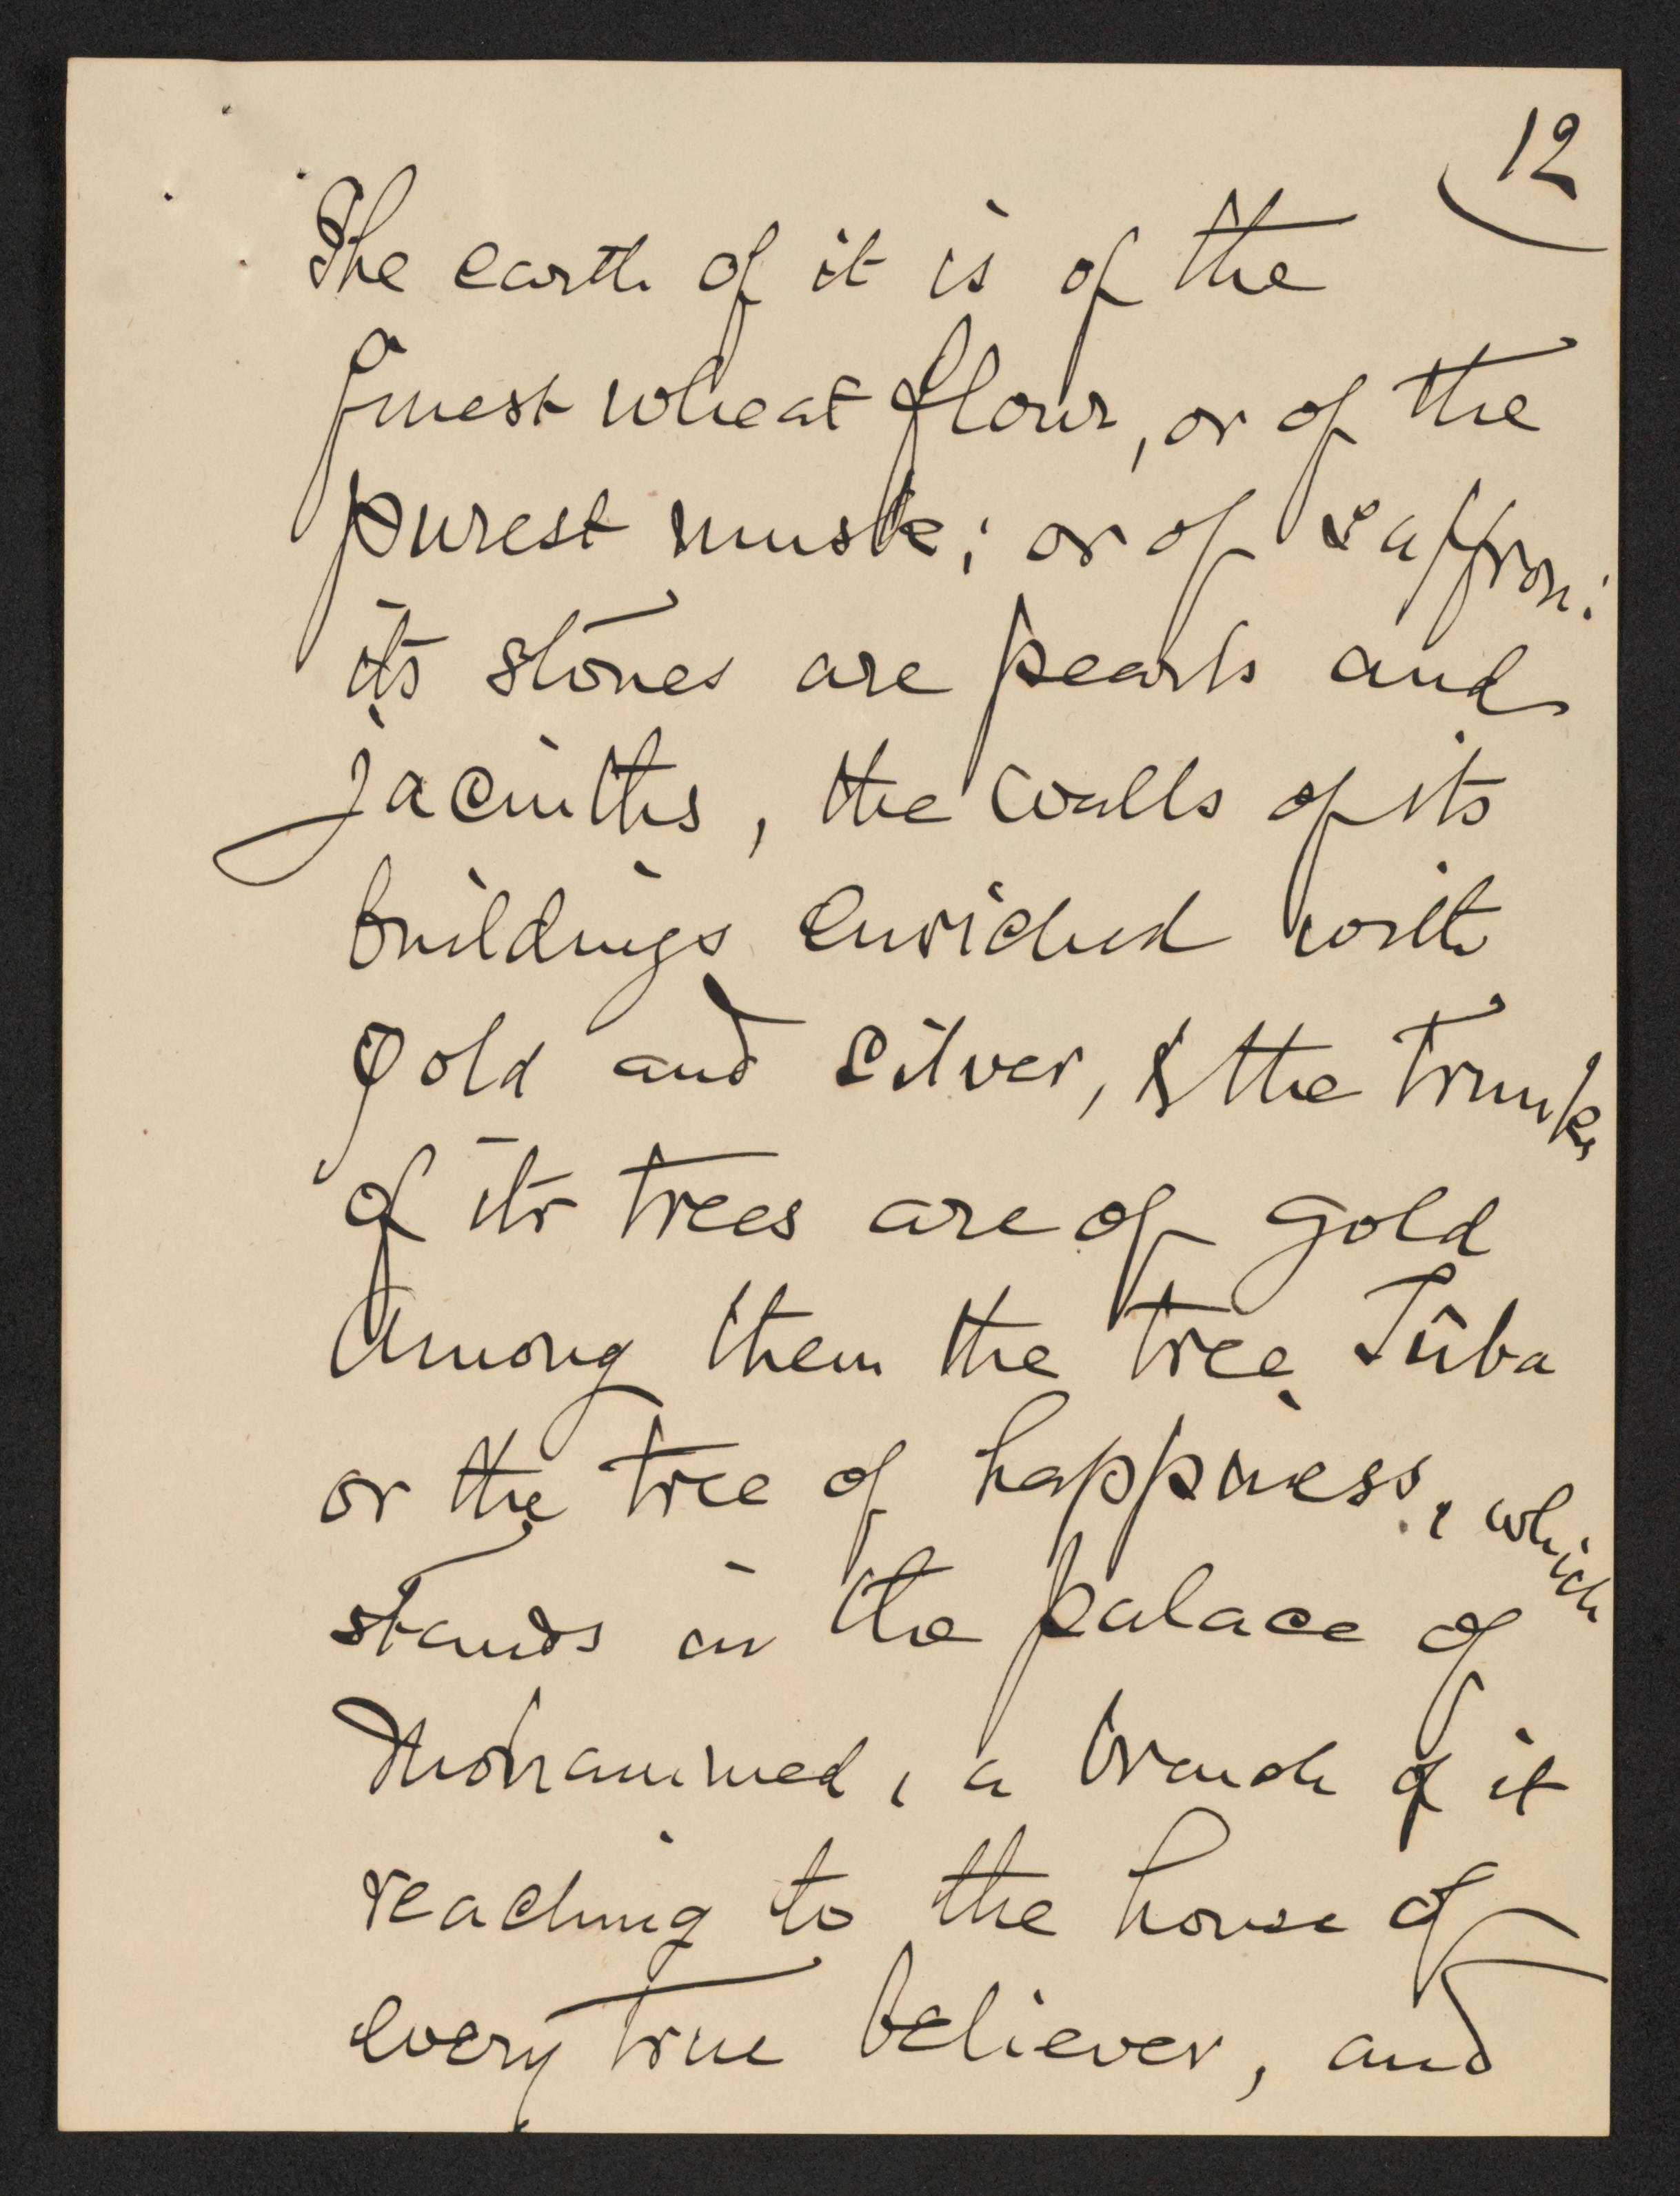 12
The earth of it is of the
finest wheat flour, or of the
purest musk; or of saffron:
its stones are pearls and
jacinths, the walls of its
buildings enriched with
gold and silver, & the trunks
of its trees are of gold
Among them the tree Tûba
or the tree of happiness, which
stands in the palace of
Mohammed, a branch of it
reaching to the house of
every true believer, and